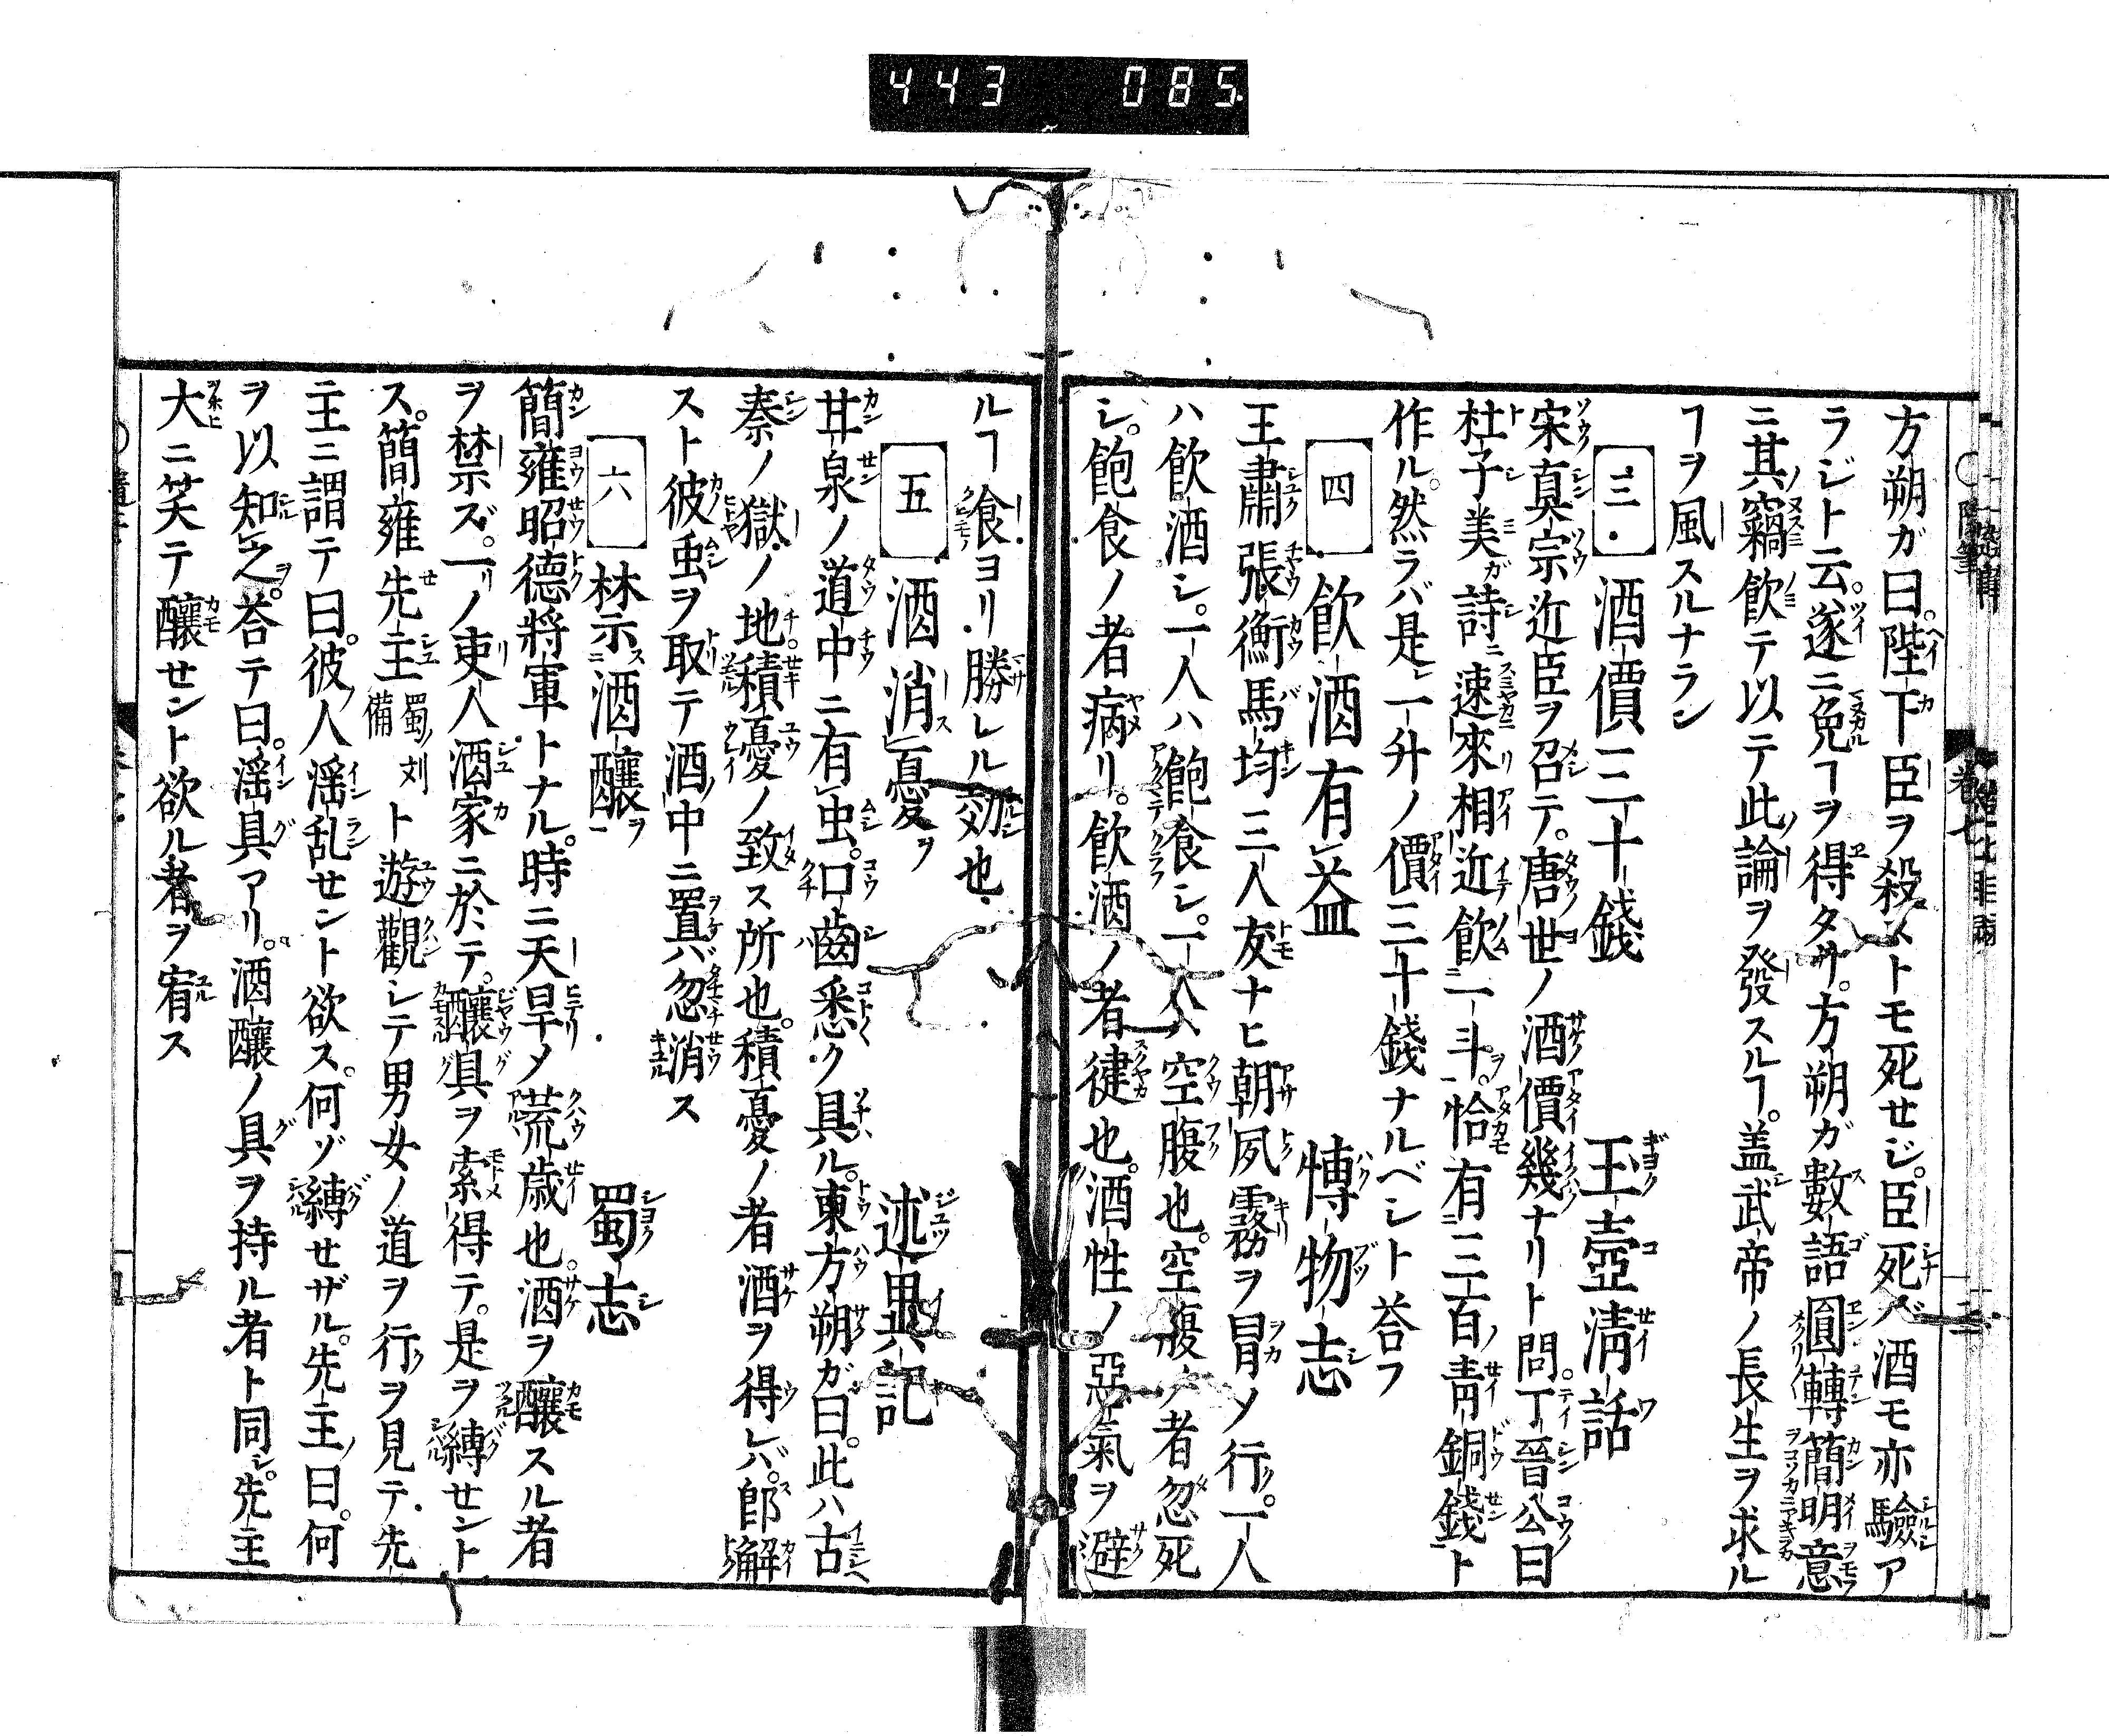 443 085
方朔ガ曰。陛下臣ヲ殺ストモ死セジ。臣死バ酒モ亦驗ア
ラジト云。遂ニ免ヿヲ得タリ。方朔ガ數語圓轉簡明意
ニ其竊飮テ以テ此論ヲ發スルヿ。盖武帝ノ長生ヲ求ル
ヿヲ風スルナラン
三 酒價三十錢 玉壺淸話
宋真宗近臣ヲ召テ。唐世ノ酒價幾ナリト問。丁晉公曰
杜子美ガ詩ニ速來相近飮一斗。恰有三百青銅錢ト
作ル。然ラバ是一升ノ價三十錢ナルベシト荅フ
四 飮酒有益 博物志
王肅張衡馬均三人友ナヒ朝夙霧ヲ冒メ行。一人
ハ飮酒シ。一人ハ飽食シ。一人ハ空腹也。空腹ノ者忽死
シ。飽食ノ者病リ。飮酒ノ者健也。酒性ノ惡氣ヲ避
ルヿ食ヨリ勝レル効也
五 酒消憂ヲ 述異記
甘泉ノ道中ニ有虫。口齒悉ク具ル。東方朔ガ曰。此ハ古
秦ノ獄ノ地積憂ノ致ス所也。積憂ノ者酒ヲ得レバ。即解
スト彼虫ヲ取テ酒中ニ置バ忽消ス
六 禁酒釀ヲ 蜀志
簡雍昭德將軍トナル。時ニ天旱メ荒歳也。酒ヲ釀スル者
ヲ禁ズ。一ノ吏人酒家ニ於テ。釀具ヲ索得テ。是ヲ縛セント
ス。簡雍先主蜀ノ刘備ト遊觀シテ男女ノ道ヲ行ヲ見テ。先
主ニ謂テ曰。彼人淫乱セント欲ス。何ゾ縛セザル。先主ノ曰。何
ヲ以知之。荅テ曰。淫具アリ。酒釀ノ具ヲ持ル者ト同シ。先主
大ニ笑テ釀セント欲ル者ヲ宥ス